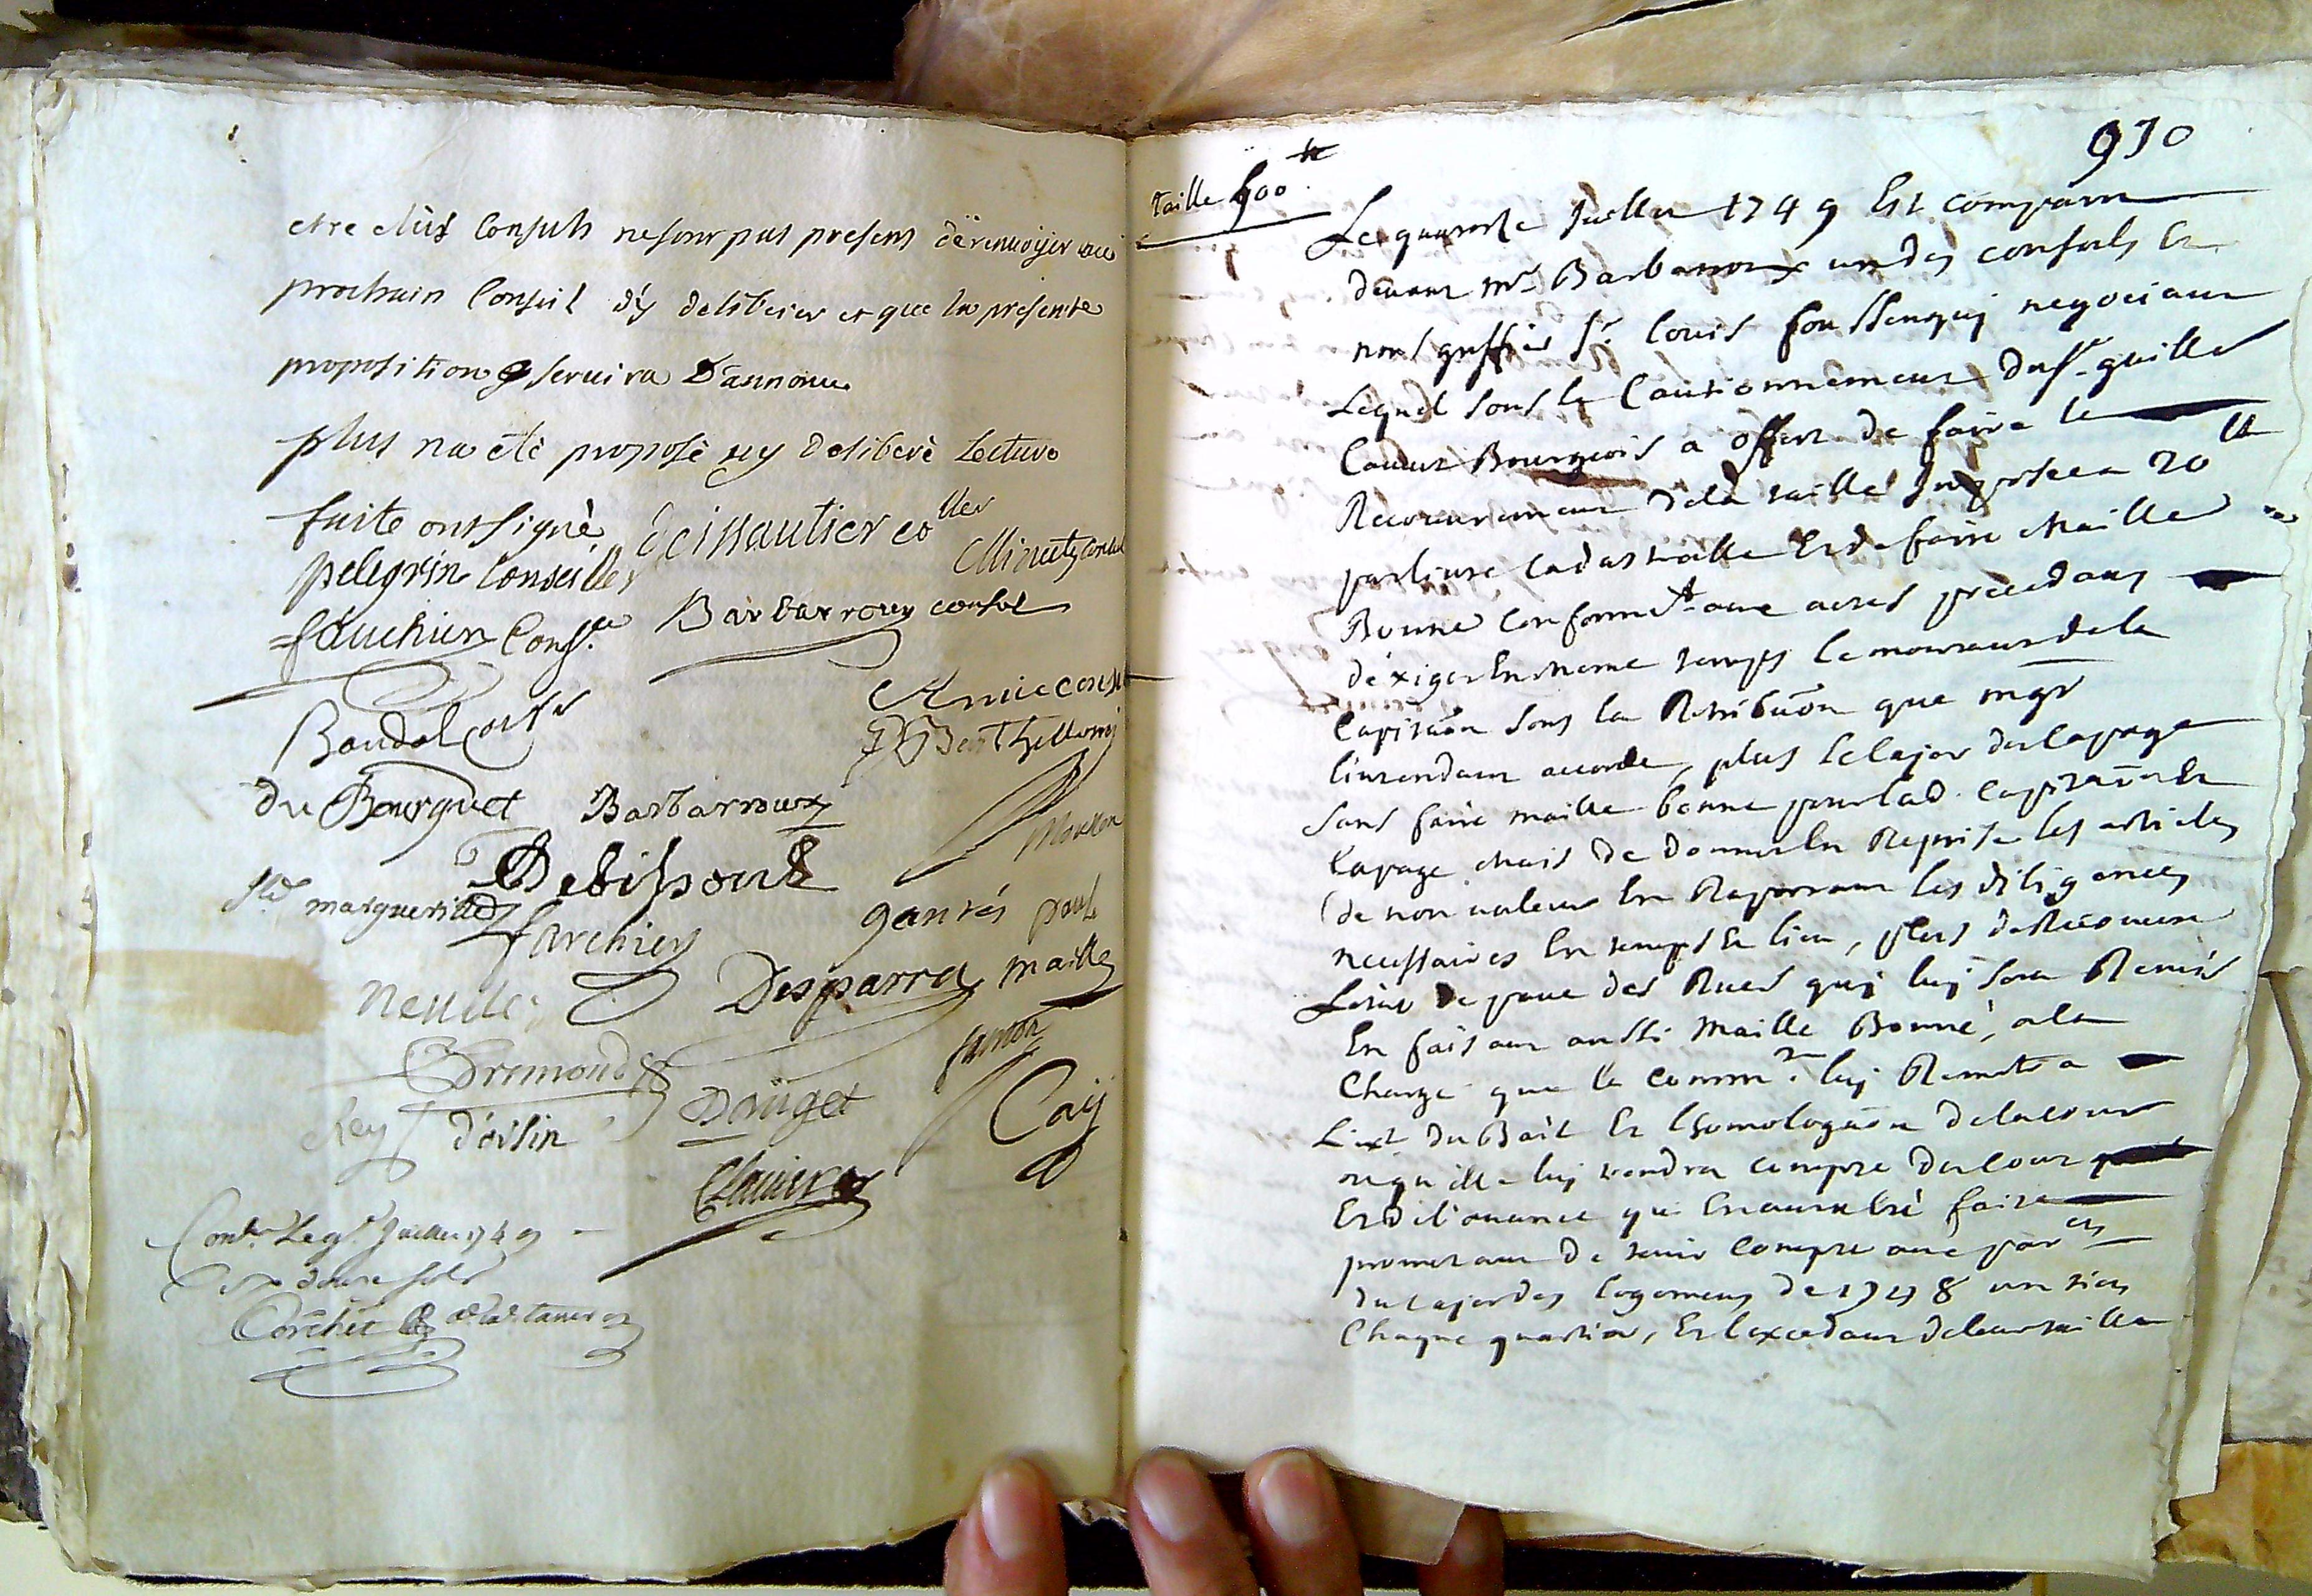 etre elûs Consuls ne sont pas presens de renvoÿer au
prochain Conseil d'ÿ deliberer et que la presente
proposition servira D'annonce
plus na eté proposé ny deliberé Lecture
faite ont signé
pelegrin Conseiller
Geissautier coller
Minuty Consul
fauchier Consr
Barbarroux consul
Baudol
Amic
Berthellomy
du Bourguet Barbarroux
Moutton
Debissout
Ste marguerite
farchier
gantés paul
neulle
Desparra maille
Bremond
famon
Rey d'oisin
Douget
Caÿ
Clavier
Juillet 1749
douze sols
930
taille 900
Le quatorze Juillet 1749 Est comparu
devant Mr Barbaroux un des consuls Et
nous greffier Sr Louis foussenquy negociant
Lequel sous le Cautionnement du Sr guilles
Bourgeois a offert de faire le
Recouvrement de la taille Imposée a 20 lt
par livre cadastralle Et de faire Maille
Bonne conformt aux actes precedants
d'exiger En meme temps le montant de la
Capitaon sous la Retribuon que mgr
l'intendant accorde, plus le du Capage
sans faire maille bonne pour lad. Capitaon Et
Capage Mais de donner En Reprise les articles
de non valeur En Raportant les diligences
necessaires En temps Et lieu, plus de Recouvrer
de pavé des Rues quy luy sera Remis
En faisant aussi Maille Bonne, a la
Charge que la commté luy Remettra
L'ext. du Bail Et L'homologaon de la cour
ou qu'elle luy tiendra compte du cout
Et de l'avance qui En aura été faite
prometant de tenir compte aux parers
du des logemens de 1748 un tiers
Chaque quartier, Et l'excedant de leur taille